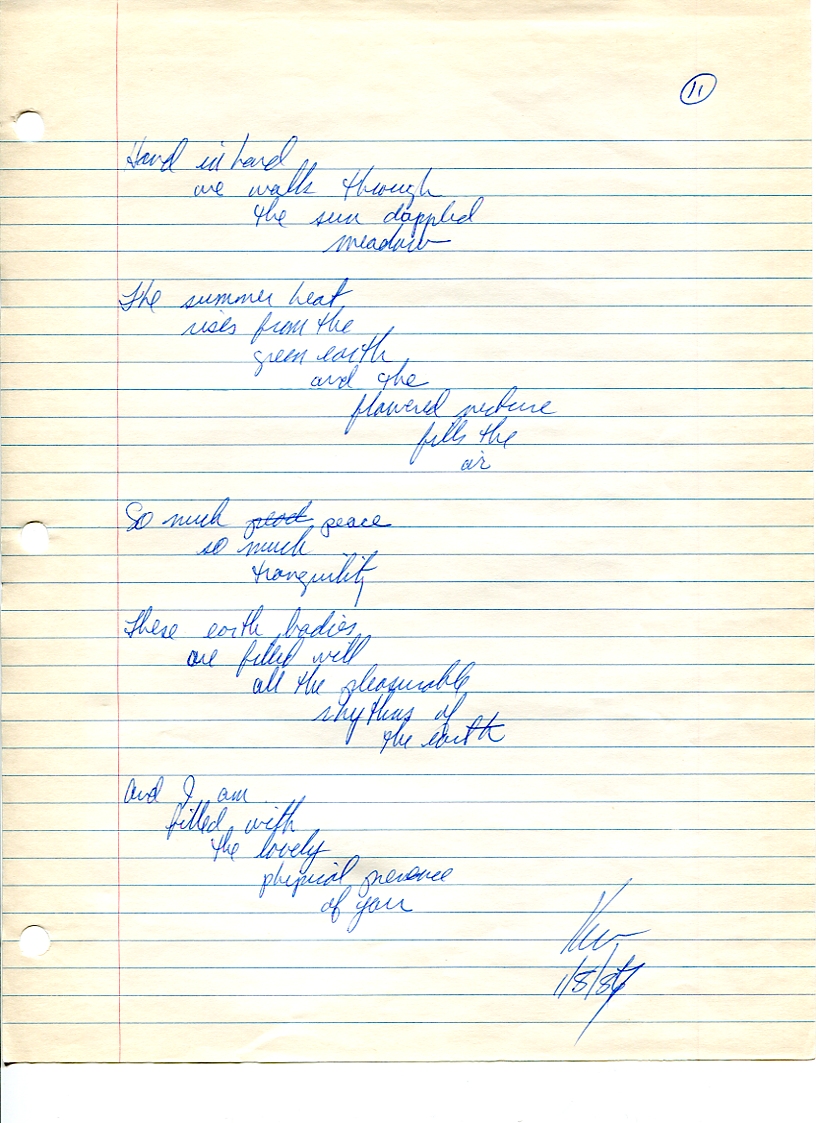 11
Hand in hand
we walk through
the sun dappled
meadow
The summer heat
rises from the
green earth
and the
flowered
fills the
air
So much peace
so much
tranquility
These earth bodies
are filled will
all the pleasurable
rhythms of
the earth
And I am
filled with
the lovely
physical presence
of you
1/8/86